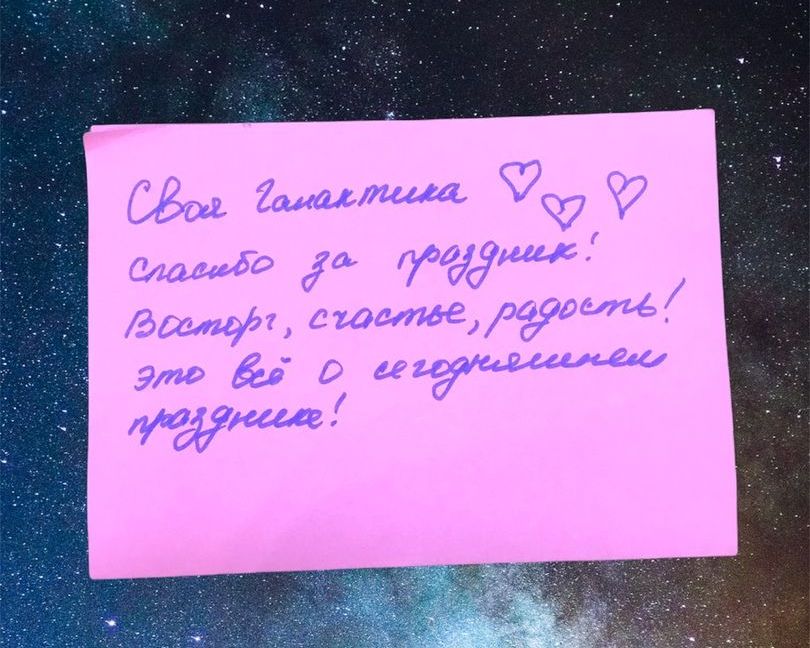 Своя Галактика
спасибо за праздник!
Восторг, счастье, радость!
это всё о сегодняшнем
празднике!